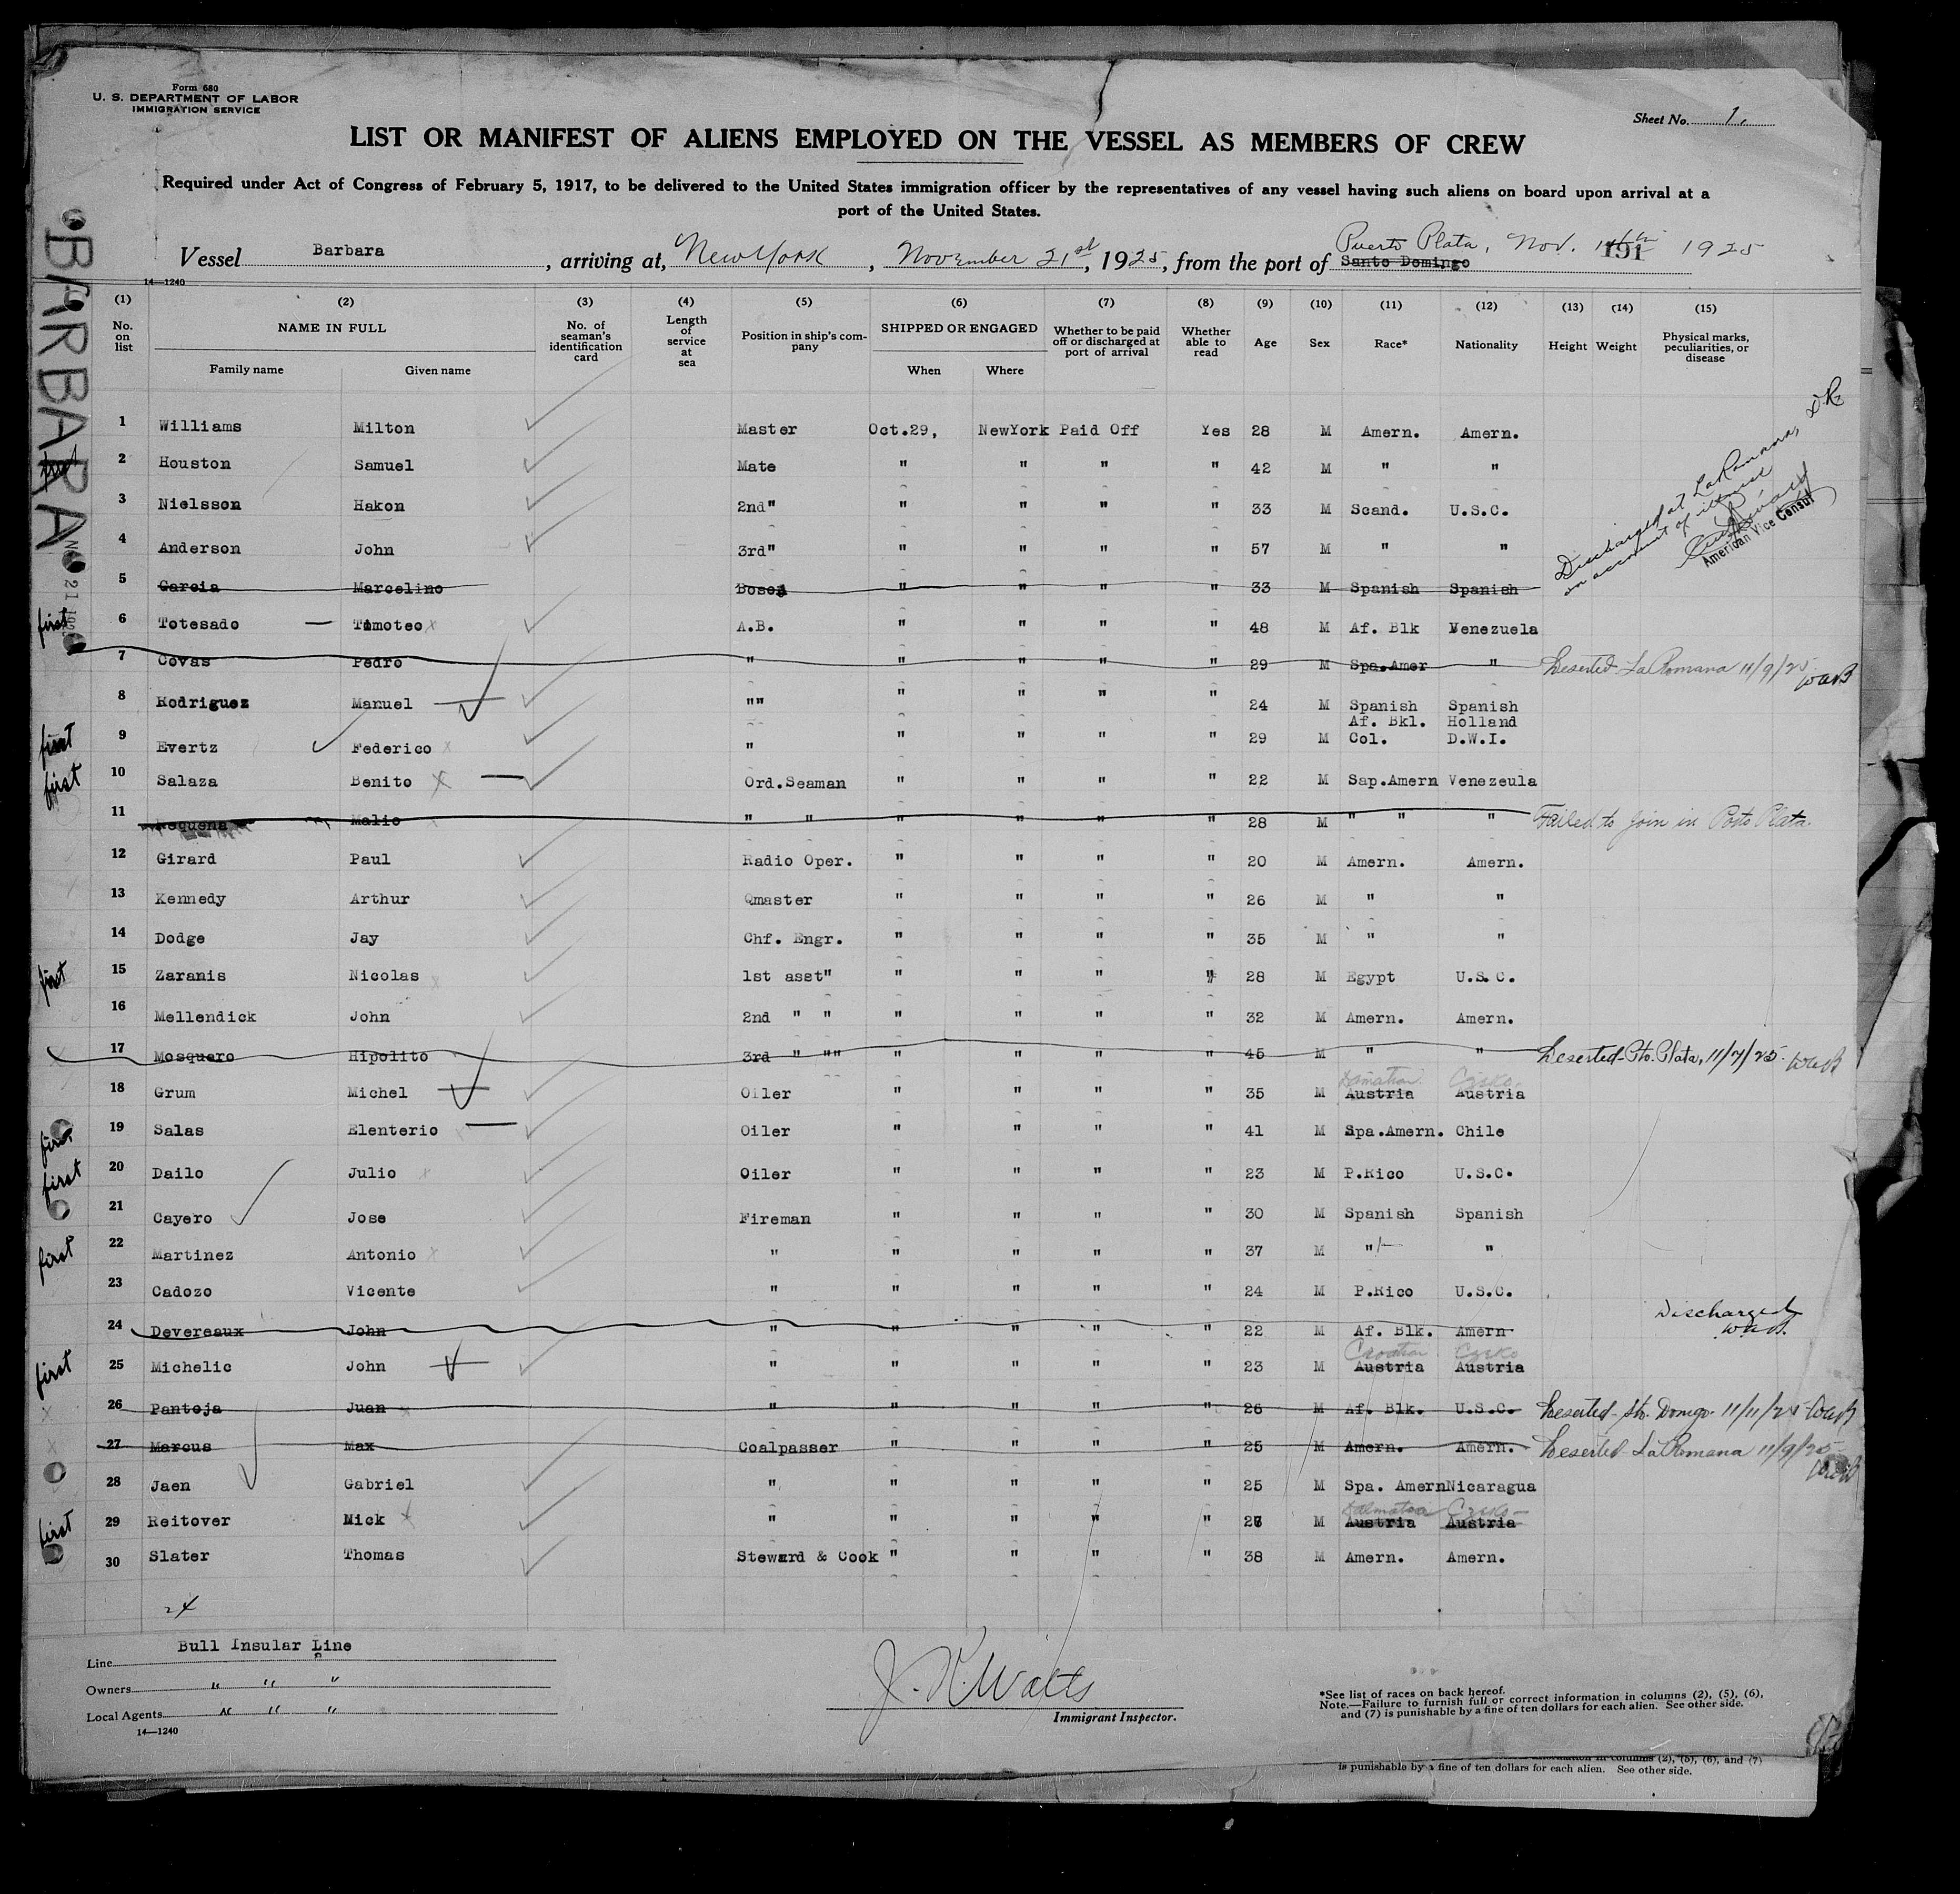 Form 680
U. S. DEPARTMENT OF LABOR
IMMIGRATION SERVICE
Sheet No. 1.
LIST OR MANIFEST OF ALIENS EMPLOYED ON THE VESSEL AS MEMBERS OF CREW
Required under Act of Congress of February 5, 1917, to be delivered to the United States immigration officer by the representatives of any vessel having such aliens on board upon arrival at a
port of the United States.
BARBARA
Vessel Barbara, arriving at, New York, November 21st, 1925, from the port of Santo Domingo Puerto Plata, Nov. 191 1925
14—1240
(1) (2) (3) (4) (5) (6) (7) (8) (9) (10) (11) (12) (13) (14) (15)
No. on list NAME IN FULL Family name Given name No. of seaman's identification card Length of service at sea Position in ship's company SHIPPED OR ENGAGED When Where Whether to be paid off or discharged at port of arrival Whether able to read Age Sex Race* Nationality Height Weight Physical marks, peculiarities, or disease
1 Williams Milton Master Oct.29, NewYork Paid Off Yes 28 M Amern. Amern.
2 Houston Samuel Mate " " " " 42 M " "
3 Nielsson Hakon 2nd" " " " " 33 M Scand. U.S.C.
4 Anderson John 3rd" " " " " 57 M " "
Discharged at LaRomana, D.R.
on account of illness
American Vice Consul
5 Garcia Marcelino Bosea " " " " 33 M Spanish Spanish
first 6 Totesado Timoteo A.B. " " " " 48 M Af. Blk Venezuela
7 Covas Pedro " " " " " 29 M Spa.Amer " Deserted La Romana 11/9/25 WAB
8 Rodriguez Manuel "" " " " " 24 M Spanish Spanish
first 9 Evertz Federico " " " " " 29 M Af. Bkl. Col. Holland D.W.I.
first 10 Salaza Benito Ord.Seaman " " " " 22 M Sap.Amern Venezeula
11 Requena Malio " " " " " " 28 M " " " Failed to join in Porto Plata.
12 Girard Paul Radio Oper. " " " " 20 M Amern. Amern.
13 Kennedy Arthur Qmaster " " " " 26 M " "
14 Dodge Jay Chf. Engr. " " " " 35 M " "
first 15 Zaranis Nicolas 1st asst" " " " " 28 M Egypt U.S.C.
16 Mellendick John 2nd " " " " " " 32 M Amern. Amern.
17 Mosquero Hipolito 3rd " "" " " " " 45 M " " Deserted-Pto. Plata, 11/7/25. WAB
18 Grum Michel Oiler " " " " 35 M Dalmatian Austria Czeko- Austria
first 19 Salas Elenterio Oiler " " " " 41 M Spa.Amern. Chile
first 20 Dailo Julio Oiler " " " " 23 M P.Rico U.S.C.
21 Cayero Jose Fireman " " " " 30 M Spanish Spanish
first 22 Martinez Antonio " " " " " 37 M " "
23 Cadozo Vicente " " " " " 24 M P.Rico U.S.C.
24 Devereaux John " " " " " 22 M Af. Blk. Amern Discharged WAB.
first 25 Michelic John " " " " " 23 M Croatian Austria Czeko Austria
26 Pantoja Juan " " " " " 26 M Af. Blk. U.S.C. Deserted- Sto. Domgo. 11/11/25 WAB
27 Marcus Max Coalpasser " " " " 25 M Amern. Amern. Deserted La Romana 11/9/25 WAB
28 Jaen Gabriel " " " " " 25 M Spa. Amern Nicaragua
first 29 Reitover Mick " " " " " M Dalmatia Austria Czeko- Austria
30 Slater Thomas Steward & Cook " " " " 38 M Amern. Amern.
24
Line Bull Insular Line
Owners " " "
Local Agents " " "
14—1240
J. Watts
Immigrant Inspector.
*See list of races on back hereof.
Note.—Failure to furnish full or correct information in columns (2), (5), (6),
and (7) is punishable by a fine of ten dollars for each alien. See other side.
information in columns (2), (5), (6), and (7)
is punishable by a fine of ten dollars for each alien. See other side.